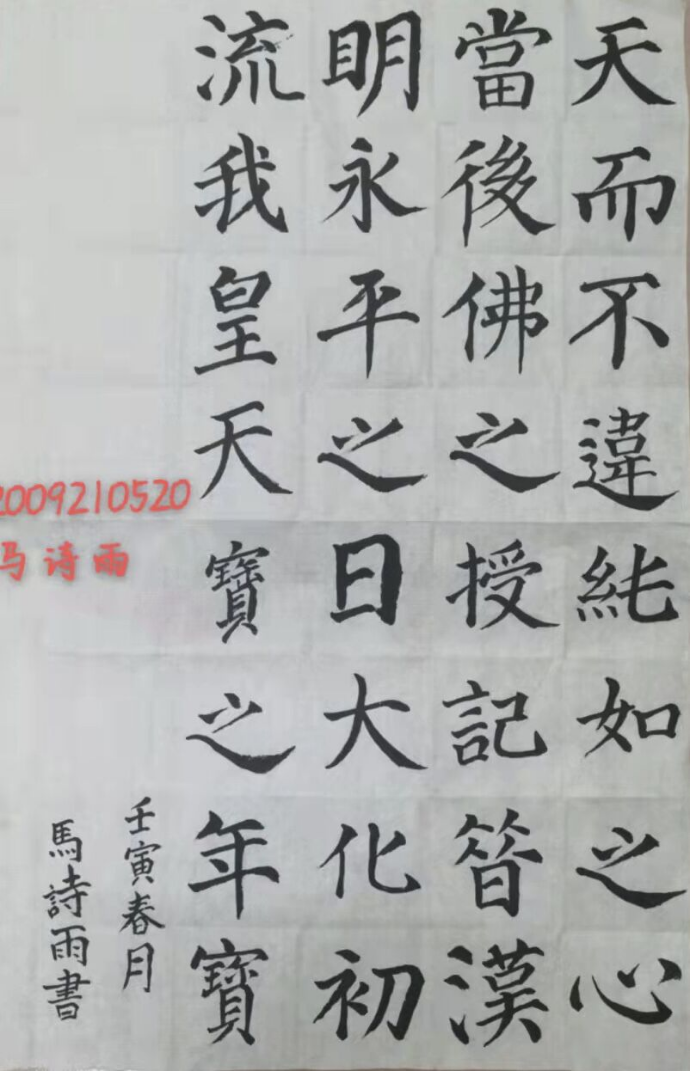 天而不違純如之心
當後佛之授記昔漢
明永平之日大化初
流我皇天寶之年寶
壬寅春月
馬詩雨書
2009210520
马诗雨